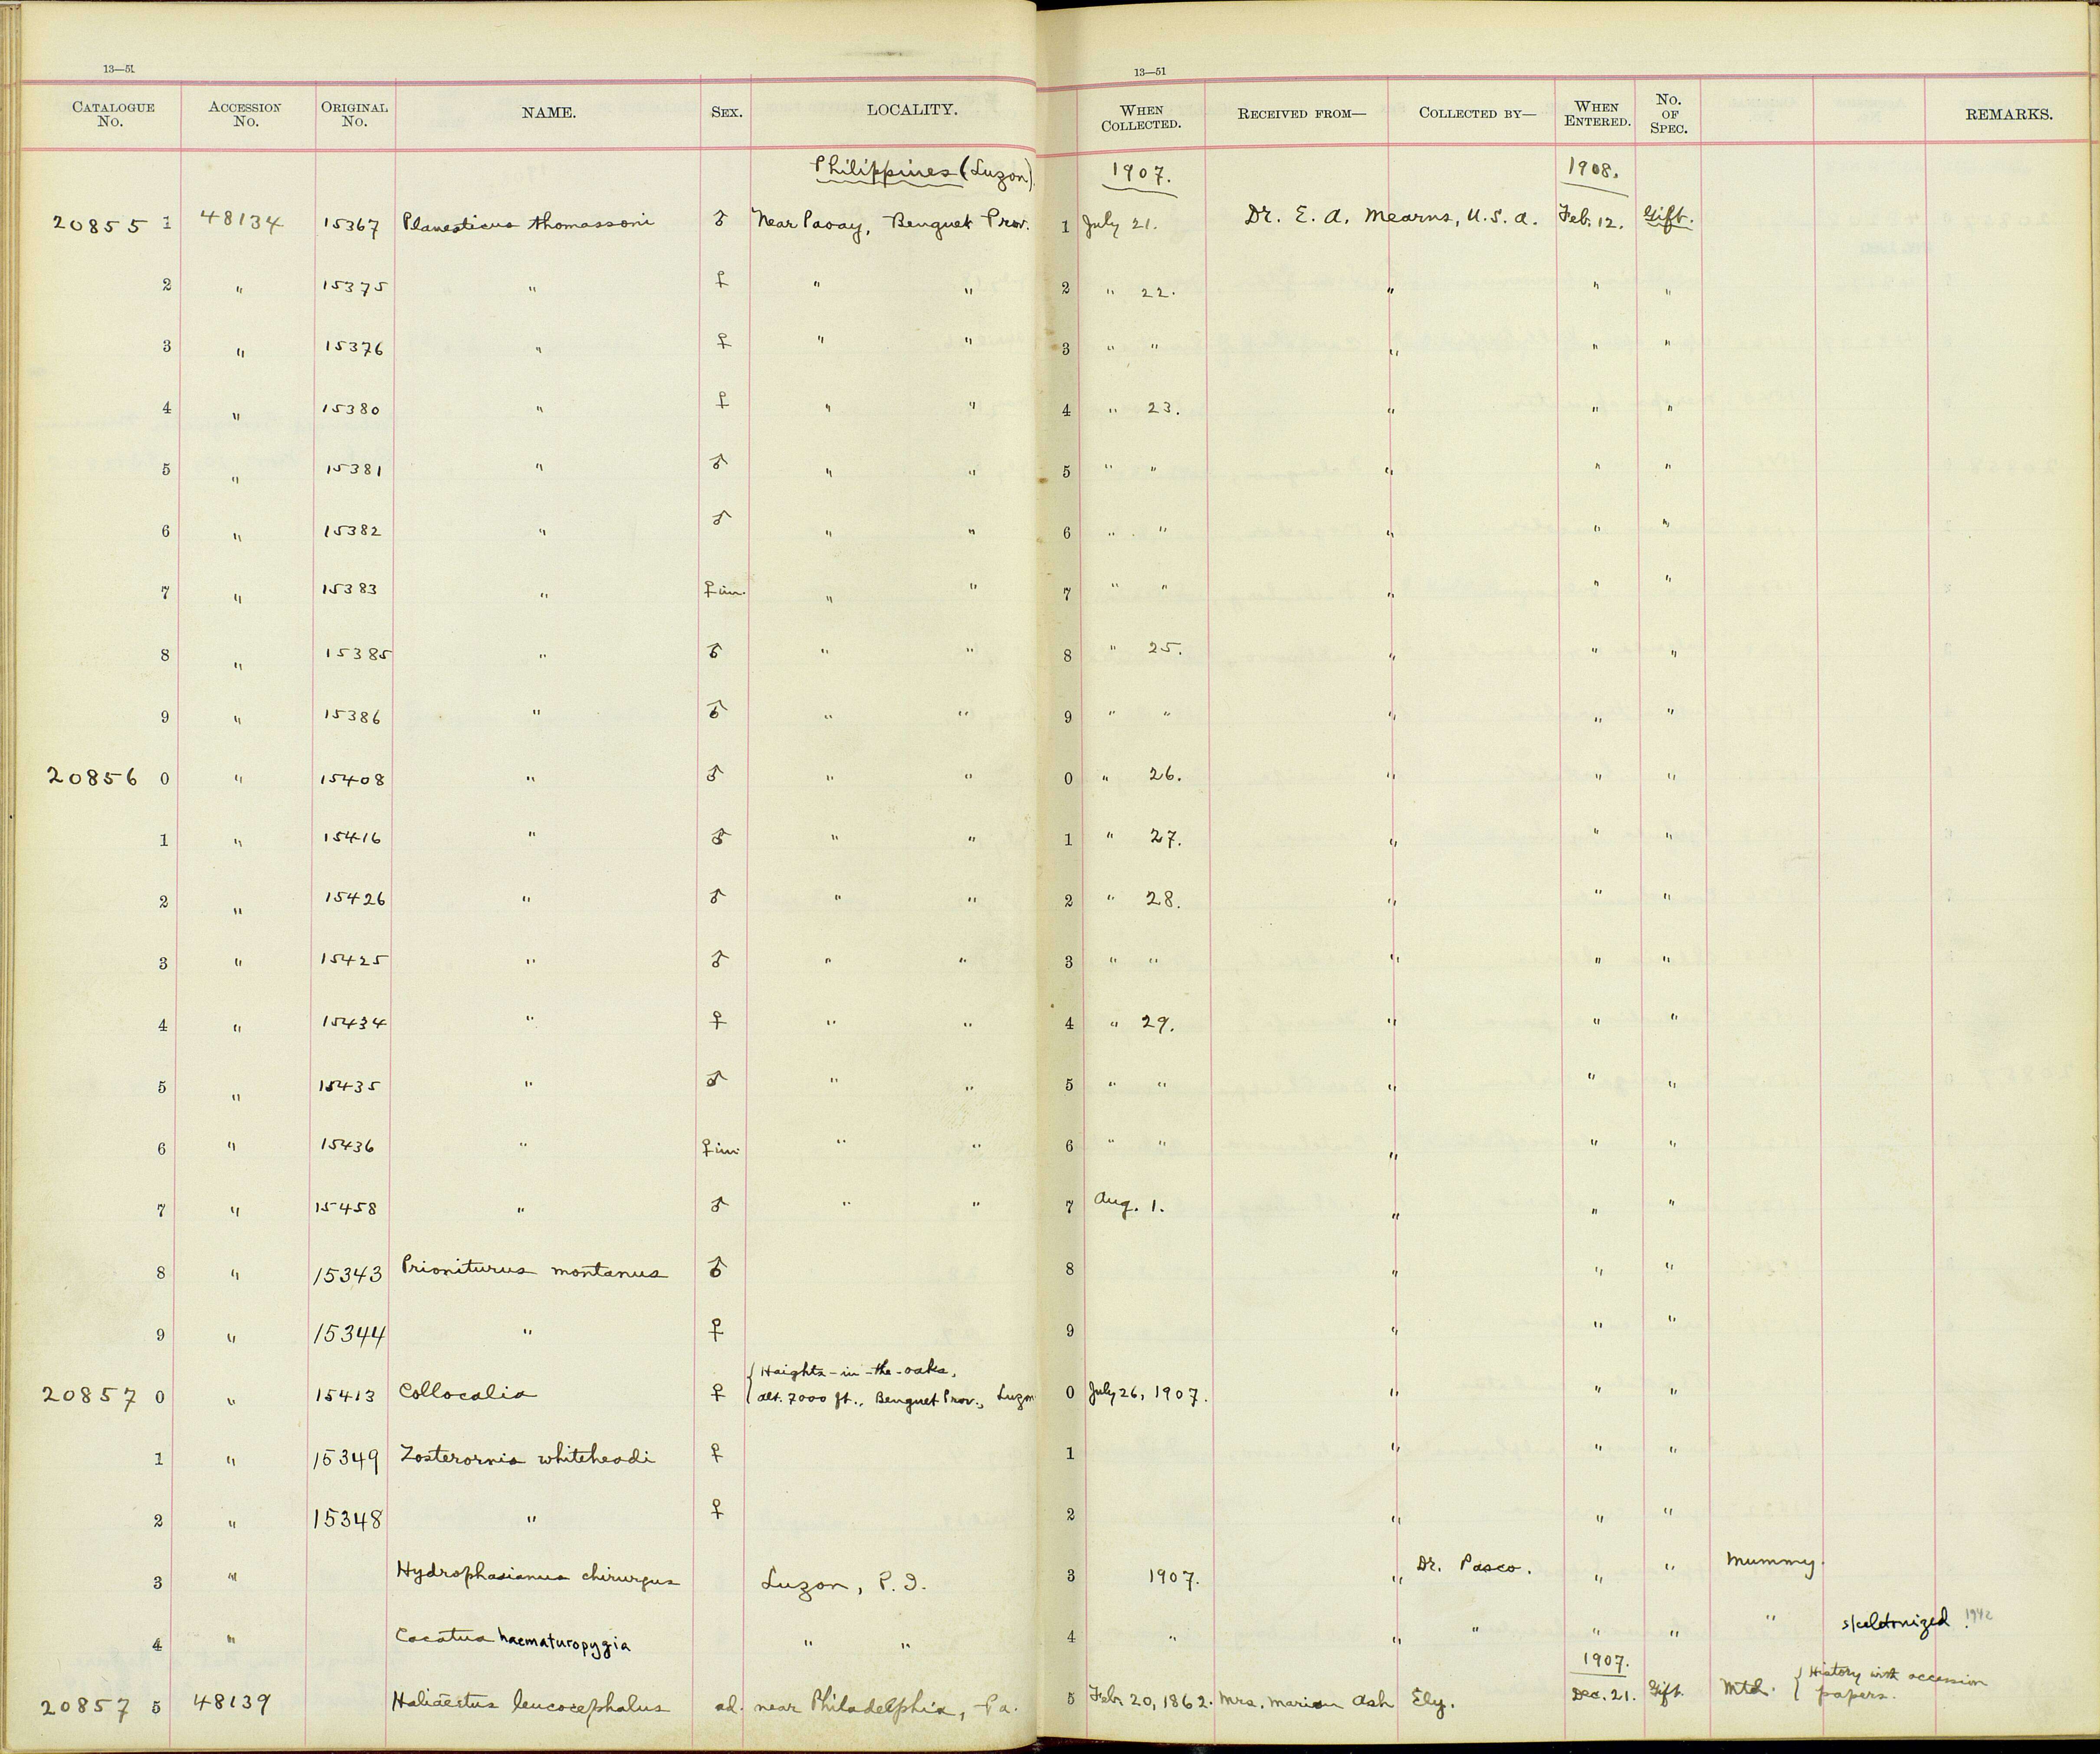 13—51
13—51
CATALOGUE No. ACCESSION No. ORIGINAL No. NAME. SEX. LOCALITY. WHEN COLLECTED. RECEIVED FROM— COLLECTED BY— WHEN ENTERED. No. OF SPEC. REMARKS.
Philippines (Luzon) 1907. 1908.
20855 1 48134 15367 Planesticus thomassoni ♂ Near Paoay, Benguet Prov. 1 July 21. Dr. E. A. Mearns, U.S.A. Feb. 12. Gift.
2 " 15375 " ♀ " " 2 " 22. " " "
3 " 15376 " ♀ " " 3 " " " " "
4 " 15380 " ♀ " " 4 " 23. " " "
5 " 15381 " ♂ " " 5 " " " " "
6 " 15382 " ♂ " " 6 " " " " "
7 " 15383 " ♀ im. " " 7 " " " " "
8 " 15385 " ♂ " " 8 " 25. " " "
9 " 15386 " ♂ " " 9 " " " " "
20856 0 " 15408 " ♂ " " 0 " 26. " " "
1 " 15416 " ♂ " " 1 " 27. " " "
2 " 15426 " ♂ " " 2 " 28. " " "
3 " 15425 " ♂ " " 3 " " " " "
4 " 15434 " ♀ " " 4 " 29. " " "
5 " 15435 " ♂ " " 5 " " " " "
6 " 15436 " ♀ im. " " 6 " " " " "
7 " 15458 " ♂ " " 7 Aug. 1. " " "
8 " 15343 Prioniturus montanus ♂ 8 " " "
9 " 15344 " ♀ 9 " " "
{ Haights-in-the-oaks,
20857 0 " 15413 Collocalia ♀ alt. 7000 ft., Benguet Prov., Luzon 0 July 26, 1907. " " "
1 " 15349 Zosterornis whiteheadi ♀ 1 " " "
2 " 15348 " ♀ 2 " " "
3 " Hydrophasianus chirurgus Luzon, P. I. 3 1907. " Dr. Pasco. " " Mummy.
4 " Cacatua haematuropygia " " 4 " " " " " " skeletonized. 1942
1907.
20857 5 48139 Haliaëtus leucocephalus ad. near Philadelphia, Pa. 5 Feb. 20, 1862. Mrs. Marion Ash Ely. Dec. 21. Gift. Mtd. { History with accession
papers.